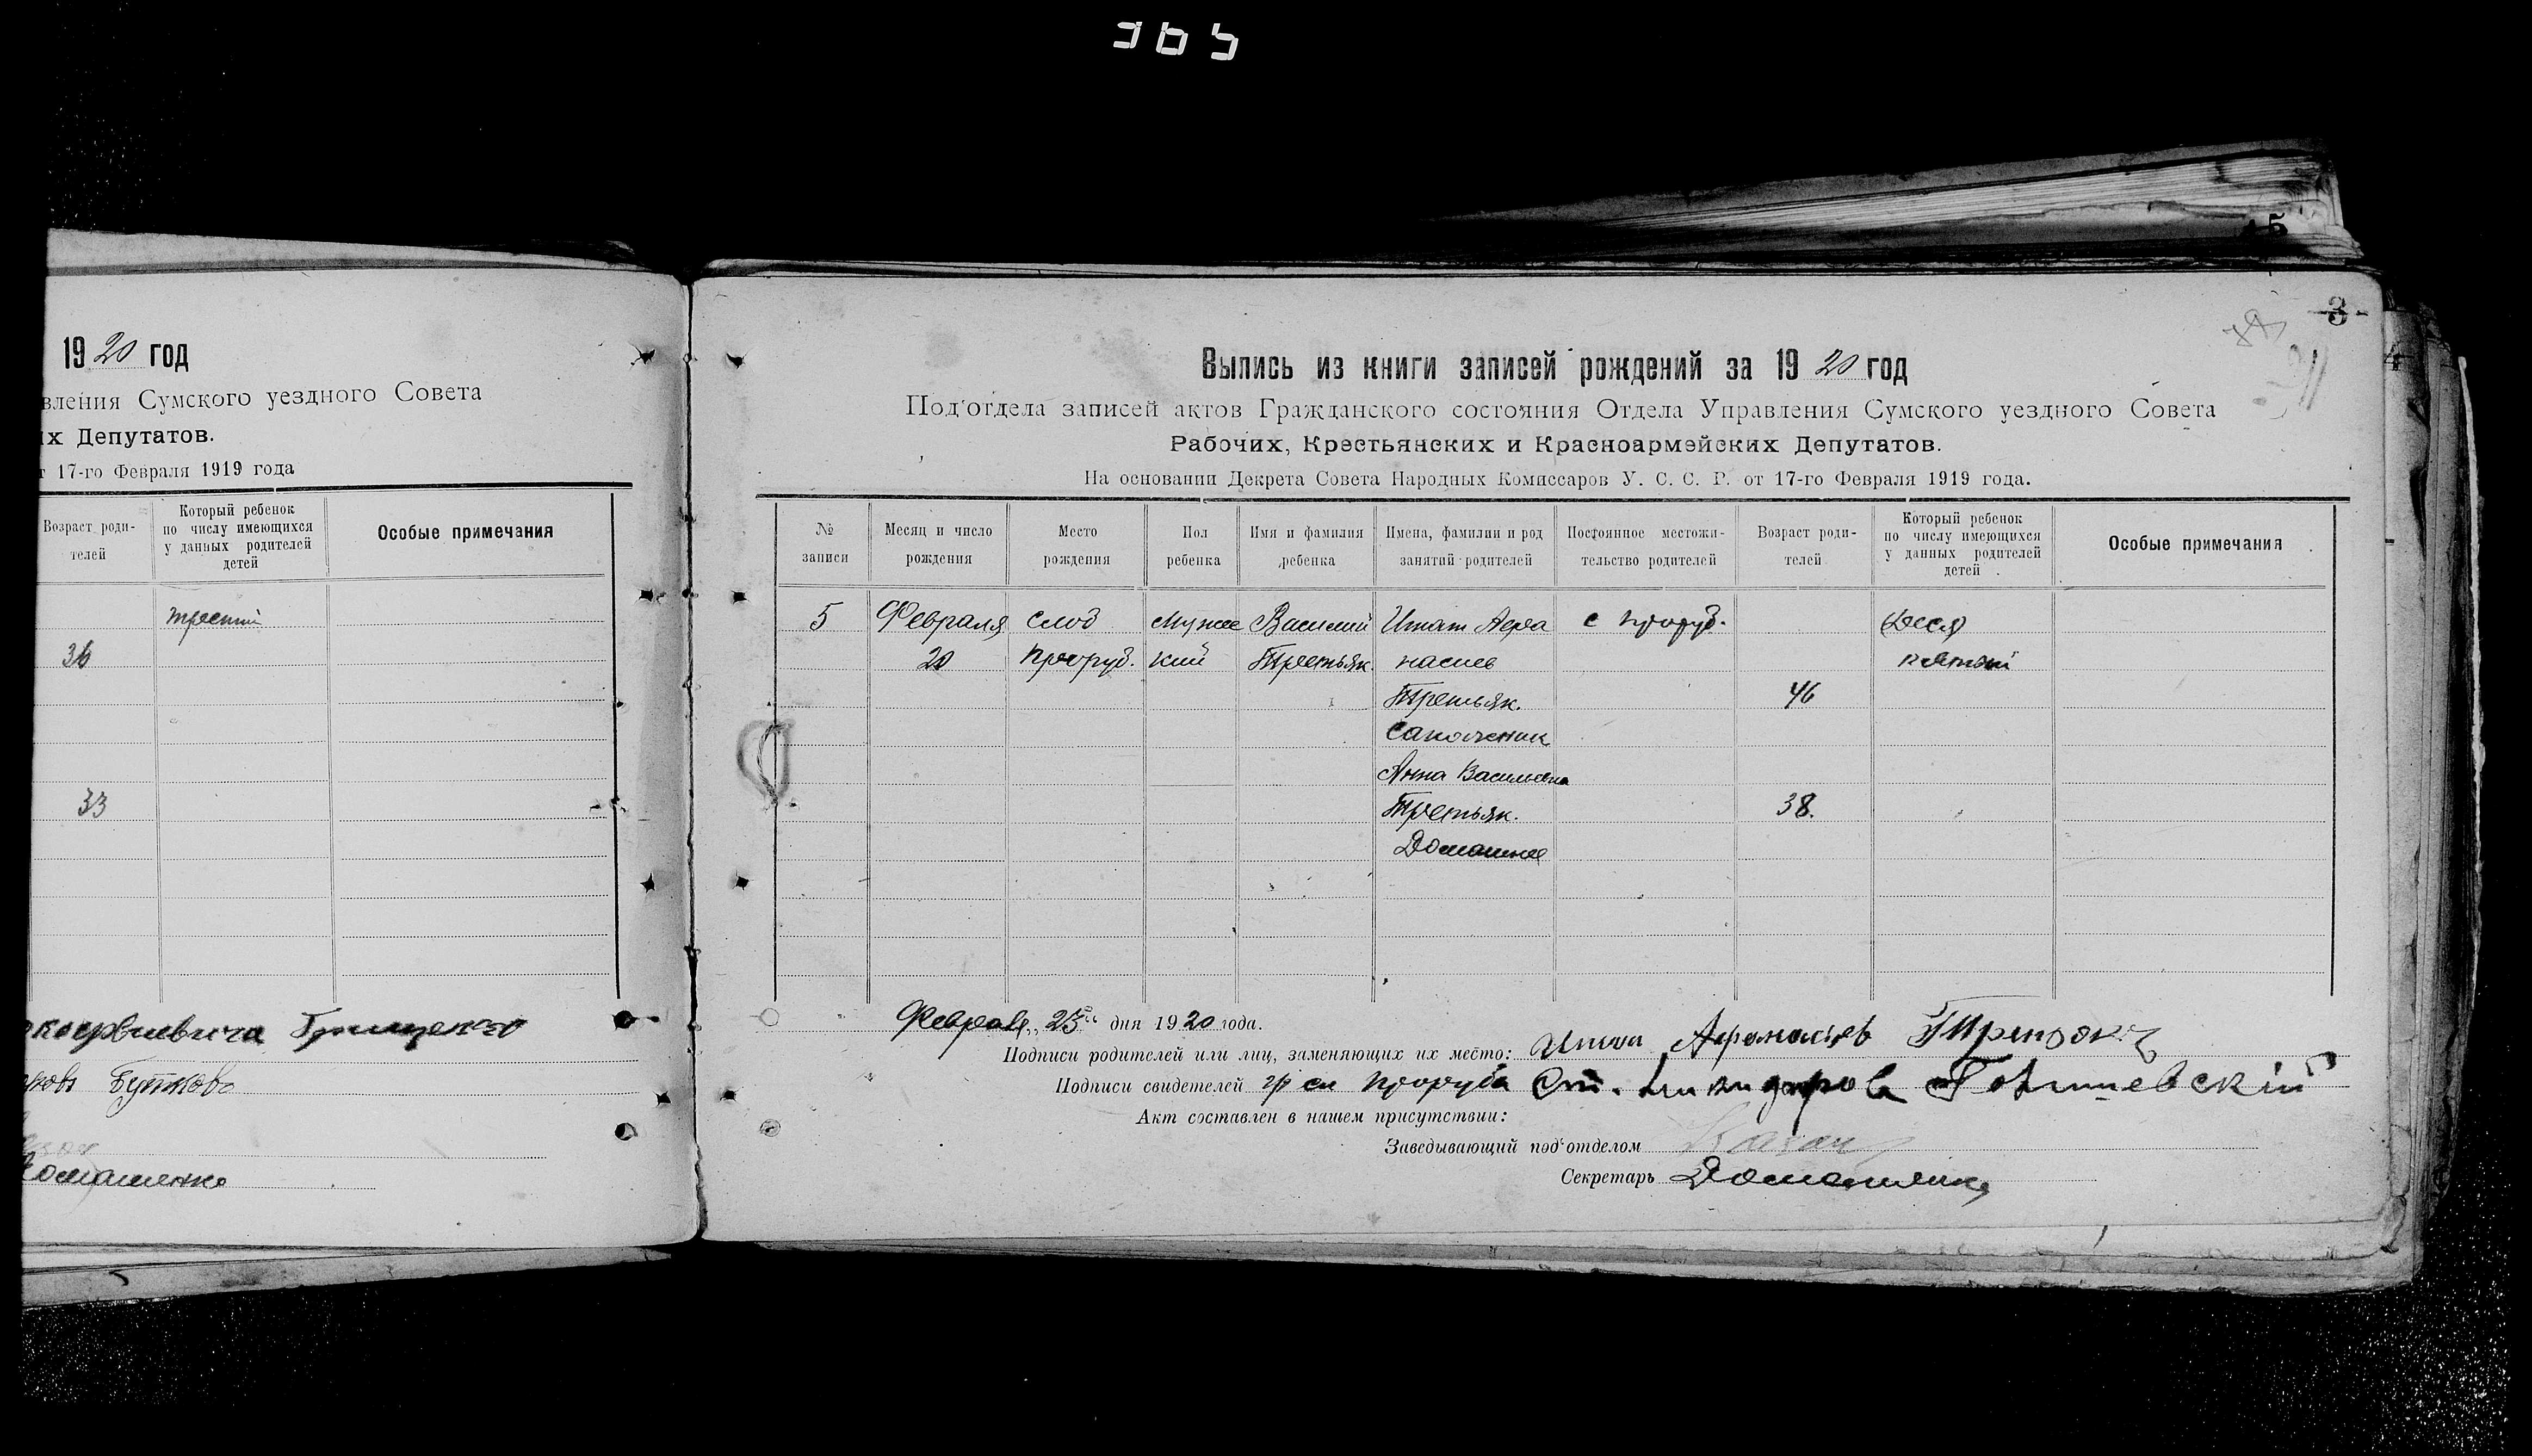 1920 год
вления Сумского уездного Совета
их Депутатов.
т 17-го Февраля 1919 года
Возраст роди-
телей
Который ребенок
по числу имеющихся
у данных родителей
детей
Особые примечания
третий
36
33
Грищенко
Домашенко
5
3
Выпись из книги записей рождений за 1920 год
Под'отдела записей актов Гражданского состояния Отдела Управления Сумского уездного Совета
Рабочих, Крестьянских и Красноармейских Депутатов.
На основании Декрета Совета Народных Комиссаров У. С. С. Р. от 17-го Февраля 1919 года.
№
записи
Месяц и число
рождения
Место
рождения
Пол
ребенка
Имя и фамилия
ребенка
Имена, фамилии и род
занятий родителей
Постоянное местожи-
тельство родителей
Возраст роди-
телей
Который ребенок
по числу имеющихся
у данных родителей
детей
Особые примечания
5 Февраля слоб Мужс Василий Игнат Афа с Проруб. Деся
20 Проруб. кий Третьяк насиев
Третьяк. 46
Сапожник
Анна Васильевна
Третьяк. 38.
Домашнее
Февраля „23" дня 1920 года.
Подписи родителей или лиц, заменяющих их место: Игнат Афанасьев Третяк
Подписи свидетелей гр сл Проруба
Акт составлен в нашем присутствии:
Заведывающий под'отделом
Секретарь Домашенко